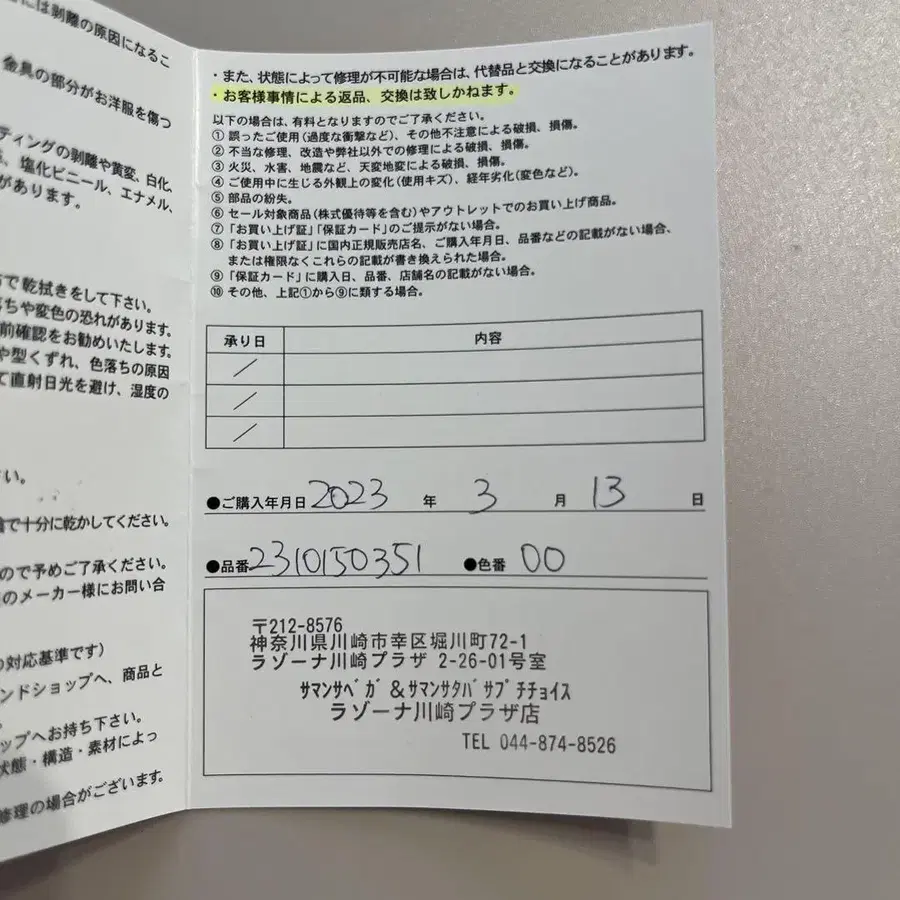 には剥離の原因になるこ
金具の部分がお洋服を傷つ
ティングの剥離や黄変、白化、
塩化ビニール、エナメル、
があります。
で乾拭きをして下さい。
落ちや変色の恐れがあります。
前確認をお勧めいたします。
や型くずれ、色落ちの原因
て直射日光を避け、湿度の
さい。
で十分に乾かしてください。
ので予めご了承ください。
のメーカー様にお問い合
の対応基準です）
ンドショップへ、商品と
ップへお持ち下さい。
状態・構造・素材によっ
修理の場合がございます。
・また、状態によって修理が不可能な場合は、代替品と交換になることがあります。
・お客様事情による返品、交換は致しかねます。
以下の場合は、有料となりますのでご了承ください。
① 誤ったご使用（過度な衝撃など）、その他不注意による破損、損傷。
② 不当な修理、改造や弊社以外での修理による破損、損傷。
③ 火災、水害、地震など、天変地変による破損、損傷。
④ ご使用中に生じる外観上の変化（使用キズ）、経年劣化（変色など）。
⑤ 部品の紛失。
⑥ セール対象商品（株式優待等を含む）やアウトレットでのお買い上げ商品。
⑦ 「お買い上げ証」「保証カード」のご提示がない場合。
⑧ 「お買い上げ証」に国内正規販売店名、ご購入年月日、品番などの記載がない場合、
または権限なくこれらの記載が書き換えられた場合。
⑨ 「保証カード」に購入日、品番、店舗名の記載がない場合。
⑩ その他、上記①から⑨に類する場合。
承り日 内容
／
／
／
●ご購入年月日 2023 年 3 月 13 日
●品番 2310150351 ●色番 00
〒212-8576
神奈川県川崎市幸区堀川町72-1
ラゾーナ川崎プラザ 2-26-01号室
ｻﾏﾝｻﾍﾞｶﾞ＆ｻﾏﾝｻﾀﾊﾞｻﾌﾟﾁﾁｮｲｽ
ラゾーナ川崎プラザ店
TEL 044-874-8526